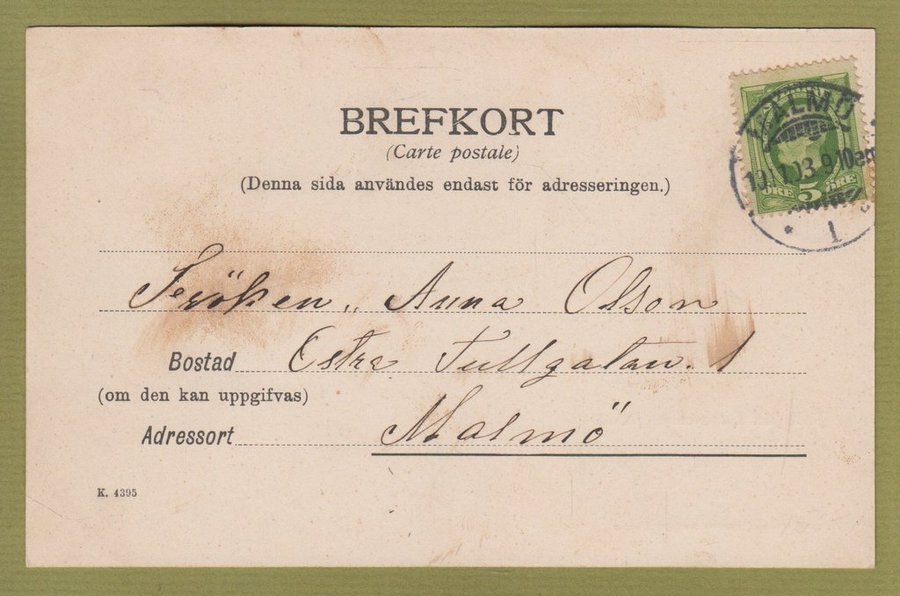 BREFKORT
(Carte postale)
(Denna sida användes endast för adresseringen.)
MALMÖ
1
5
ÖRE ÖRE
Fröken Anna Olson
Bostad Östra Tullgatan. 1
(om den kan uppgifvas)
Adressort Malmö
K. 4395